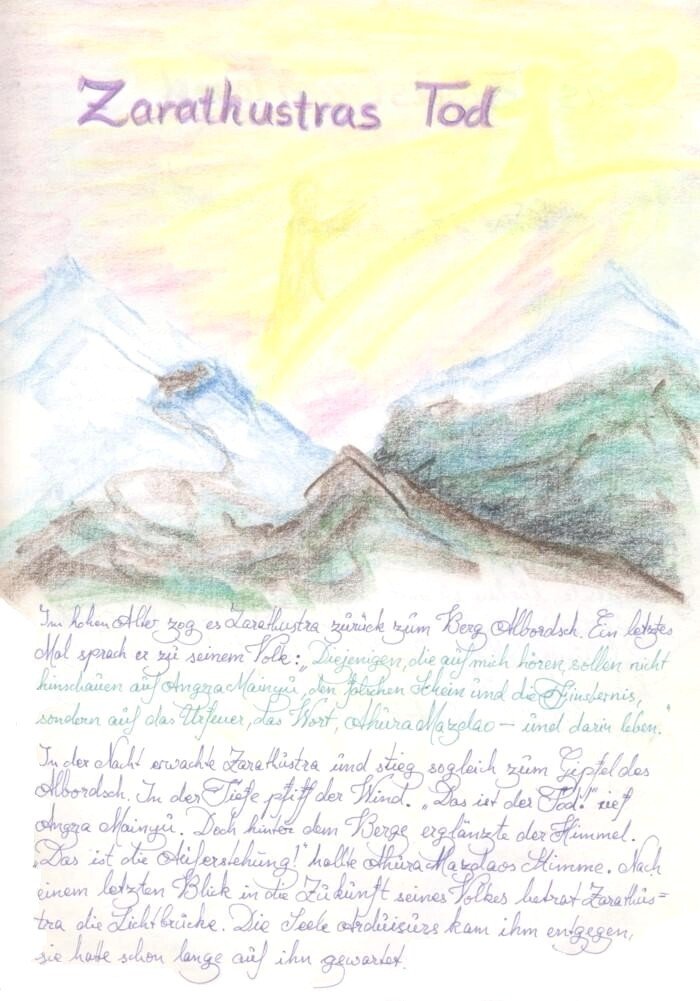 Zarathustras Tod
Im hohen Alter zog es Zarathustra zurück zum Berg Albordsch. Ein letztes
Mal sprach er zu seinem Volk: „Diejenigen, die auf mich hören, sollen nicht
hinschauen auf Angra Mainyu, den falschen Schein und die Finsternis,
sondern auf das Urfeuer, das Wort, Ahura Mazdao – und darin leben."
In der Nacht erwachte Zarathustra und stieg sogleich zum Gipfel des
Albordsch. In der Tiefe pfiff der Wind. „Das ist der Tod!" rief
Angra Mainyu. Doch hinter dem Berge erglänzte der Himmel.
„Das ist die Auferstehung!" hallte Ahura Mazdaos Stimme. Nach
einem letzten Blick in die Zukunft seines Volkes betrat Zarathus=
tra die Lichtbrücke. Die Seele Arduisurs kam ihm entgegen,
sie hatte schon lange auf ihn gewartet.